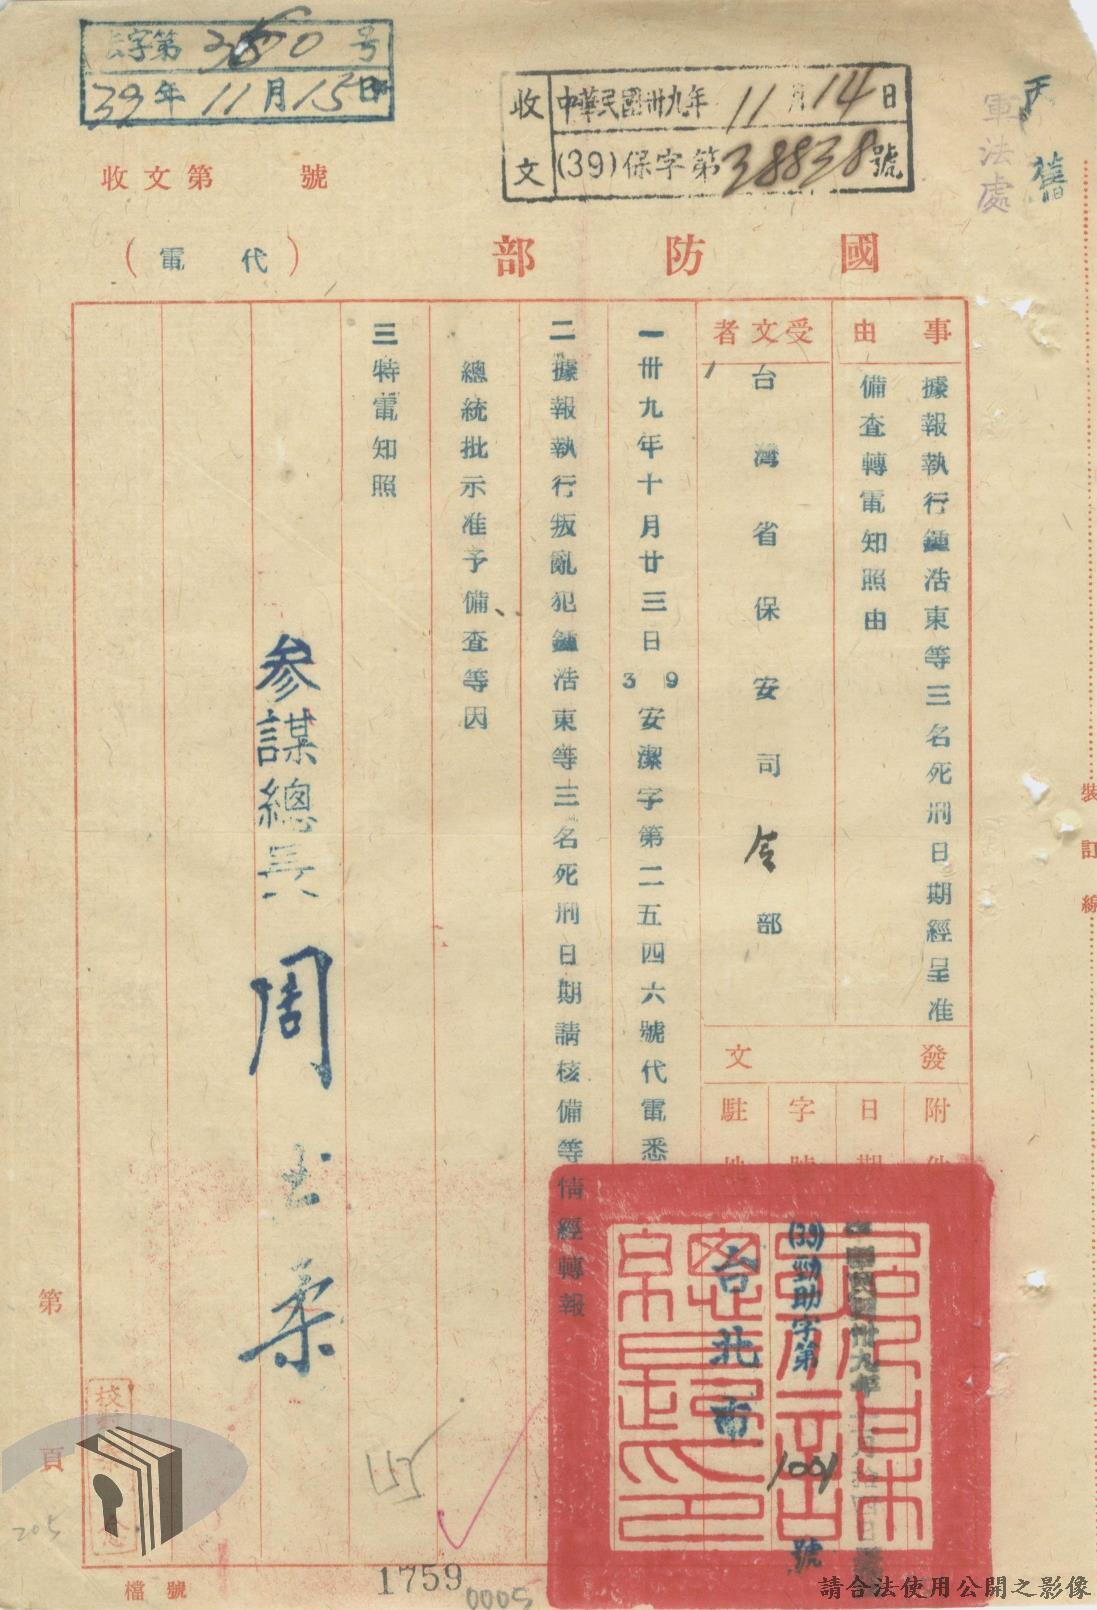 字第350号
39年11月15日
收文
中華民國卅九年11月14日
(39)保字第38838號
軍法處
收文第　號
國防部
(代電)
事由
據報執行鍾浩東等三名死刑日期經呈准
備查轉電知照由
受文者
台灣省保安司令部
發文
附件
日期
字號
駐地
中華民國卅九年
(39)勁助字第1001號
台北市
一卅九年十月廿三日39安潔字第二五四六號代電悉
二據報執行叛亂犯鍾浩東等三名死刑日期請核備等情經轉報
總統批示准予備查等因
三特電知照
參謀總長周至柔
裝訂線
第頁
205
155
檔號
1759
0005
請合法使用公開之影像